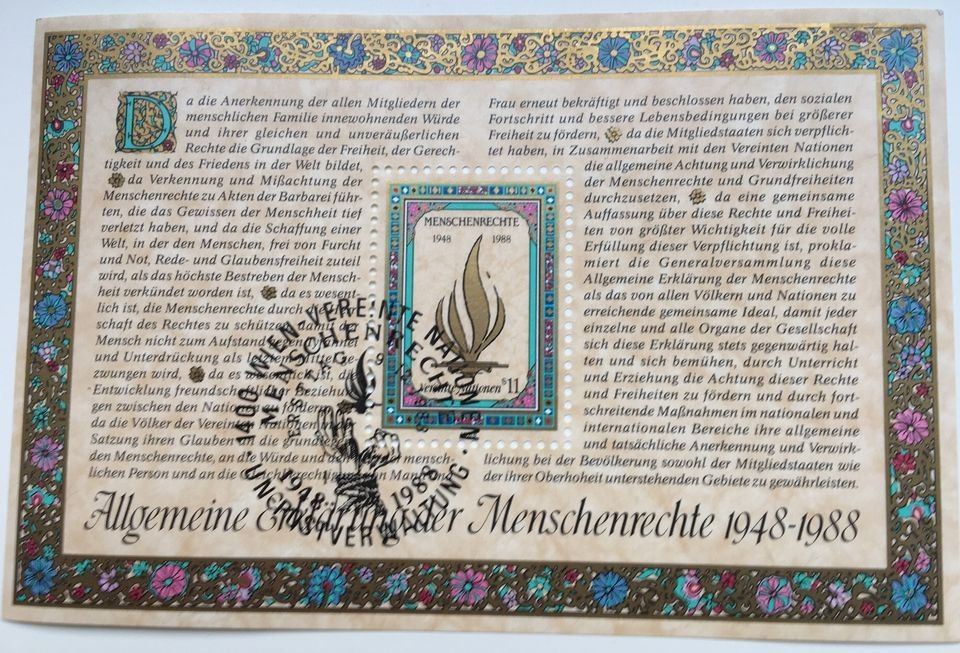 Da die Anerkennung der allen Mitgliedern der
menschlichen Familie innewohnenden Würde
und ihrer gleichen und unveräußerlichen
Rechte die Grundlage der Freiheit, der Gerech-
tigkeit und des Friedens in der Welt bildet,
da Verkennung und Mißachtung der
Menschenrechte zu Akten der Barbarei führ-
ten, die das Gewissen der Menschheit tief
verletzt haben, und da die Schaffung einer
Welt, in der den Menschen, frei von Furcht
und Not, Rede- und Glaubensfreiheit zuteil
wird, als das höchste Bestreben der Mensch-
heit verkündet worden ist, da es wesent-
lich ist, die Menschenrechte durch die Herr-
schaft des Rechtes zu schützen, damit der
Mensch nicht zum Aufstand gegen Tyrannei
und Unterdrückung als letztem Mittel ge-
zwungen wird, da es wesentlich ist, die
Entwicklung freundschaftlicher Beziehun-
gen zwischen den Nationen zu fördern,
da die Völker der Vereinten Nationen in der
Satzung ihren Glauben an die grundlegen-
den Menschenrechte, an die Würde und den der mensch-
lichen Person und an die Gleichberechtigung von Mann und
Frau erneut bekräftigt und beschlossen haben, den sozialen
Fortschritt und bessere Lebensbedingungen bei größerer
Freiheit zu fördern, da die Mitgliedstaaten sich verpflich-
tet haben, in Zusammenarbeit mit den Vereinten Nationen
die allgemeine Achtung und Verwirklichung
der Menschenrechte und Grundfreiheiten
durchzusetzen, da eine gemeinsame
Auffassung über diese Rechte und Freihei-
ten von größter Wichtigkeit für die volle
Erfüllung dieser Verpflichtung ist, prokla-
miert die Generalversammlung diese
Allgemeine Erklärung der Menschenrechte
als das von allen Völkern und Nationen zu
erreichende gemeinsame Ideal, damit jeder
einzelne und alle Organe der Gesellschaft
sich diese Erklärung stets gegenwärtig hal-
ten und sich bemühen, durch Unterricht
und Erziehung die Achtung dieser Rechte
und Freiheiten zu fördern und durch fort-
schreitende Maßnahmen im nationalen und
internationalen Bereiche ihre allgemeine
und tatsächliche Anerkennung und Verwirk-
lichung bei der Bevölkerung sowohl der Mitgliedstaaten wie
der ihrer Oberhoheit unterstehenden Gebiete zu gewährleisten.
MENSCHENRECHTE
1948 1988
Vereinte Nationen S11
1400 WIEN VEREINTE NATIONEN
MENSCHENRECHTE
1948 1988
UNO POSTVERWALTUNG
Allgemeine Erklärung der Menschenrechte 1948-1988